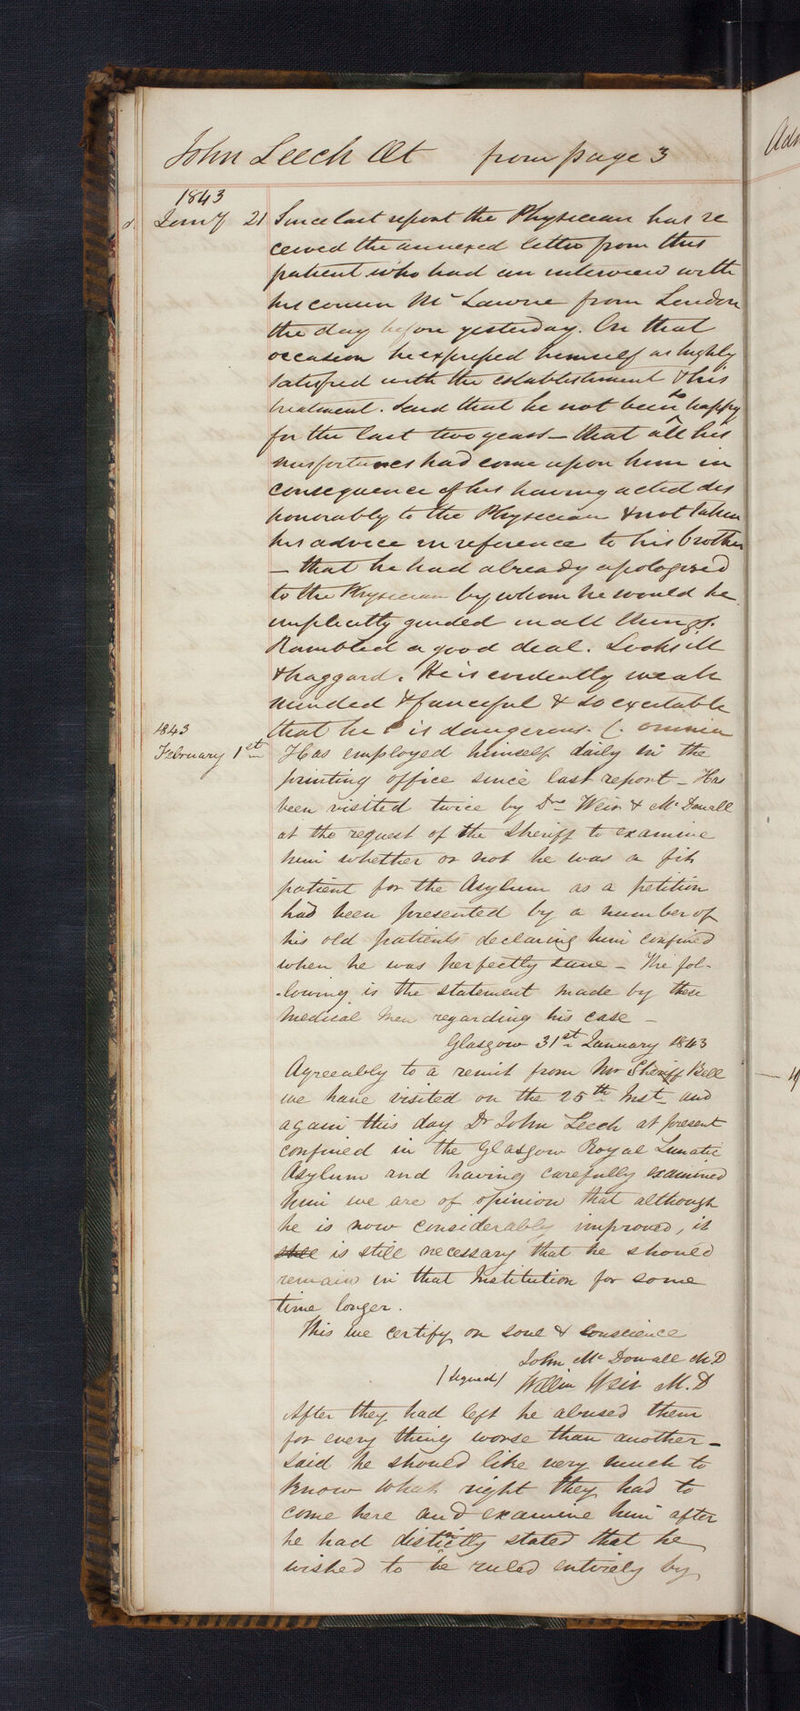 John Leech Æt from page 3
1843
Janry 21 Since last report the Physician has re
ceived the annexed letter from this
patient who had an interview with
his cousin Mr from London
the day before yesterday. On that
occasion he expressed himself as highly
satisfied with the establishment & his
treatment. Said that he not been so happy
for the last two years – that all his
misfortunes had come upon him in
consequence of his having acted dis
honorably to the Physician & not taken
his advice in reference to his brother
– that he had already apologised
to the Physician by whom he would be
implicitly guided in all things.
Rambled a good deal. Looks ill
& haggard. He is evidently weak
minded & fanciful & so excitable
that he is dangerous. C. omnia
1843
February 1st Has employed himself daily in the
printing office since last report – Has
been visited twice by Drs Weir & McDowall
at the request of the Sheriff to examine
him whether or not he was a fit
patient for the Asylum as a petition
had been presented by a number of
his old patients declaring him confined
when he was perfectly sane – The fol-
-lowing is the statement made by these
Medical Men regarding his case –
Glasgow 31st January 1843
Agreeably to a remit from Mr Sheriff Bell
we have visited on the 25th Inst and
again this day Dr John Leech at present
confined in the Glasgow Royal Lunatic
Asylum and having carefully examined
him we are of opinion that although
he is now considerably improved, it
still is still necessary that he should
remain in that Institution for some
time longer.
This we certify on soul & conscience
John McDowall M.D
(Signed) Willm Weir M.D
After they had left he abused them
for every thing worse than another –
Said he should like very much to
know what right they had to
come here and examine him after
he had distinctly stated that he
wished to be ruled entirely by